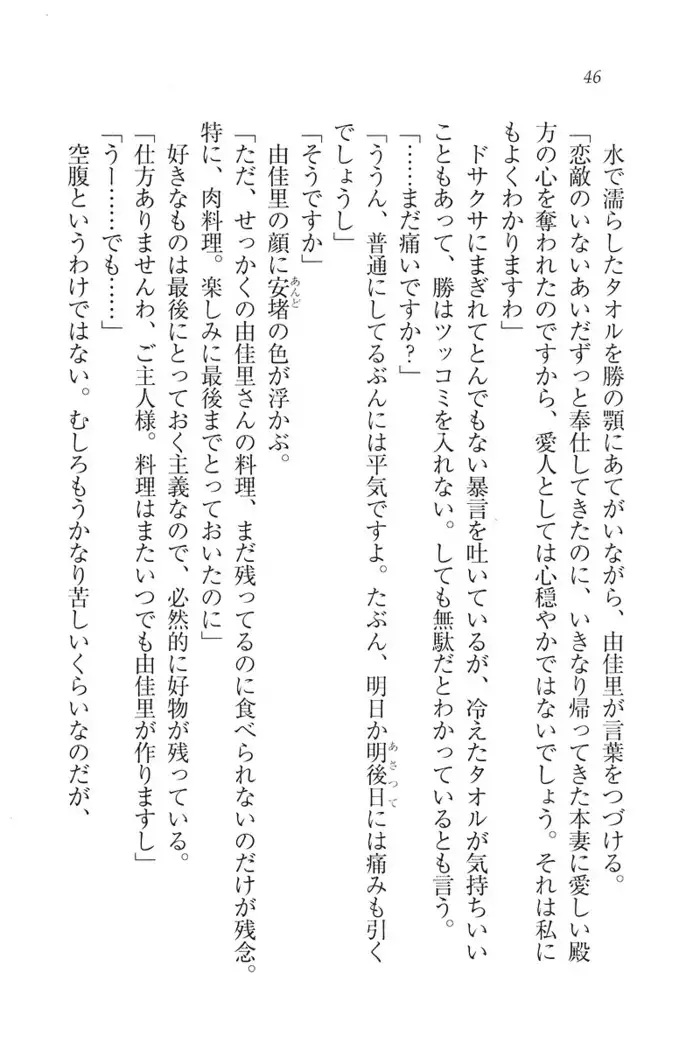 46
水で濡らしたタオルを勝の顎にあてがいながら、由佳里が言葉をつづける。
「恋敵のいないあいだずっと奉仕してきたのに、いきなり帰ってきた本妻に愛しい殿
方の心を奪われたのですから、愛人としては心穏やかではないでしょう。それは私に
もよくわかりますわ」
ドサクサにまぎれてとんでもない暴言を吐いているが、冷えたタオルが気持ちいい
こともあって、勝はツッコミを入れない。しても無駄だとわかっているとも言う。
「……まだ痛いですか？」
「ううん、普通にしてるぶんには平気ですよ。たぶん、明日か明後日あさってには痛みも引く
でしょうし」
「そうですか」
由佳里の顔に安堵あんどの色が浮かぶ。
「ただ、せっかくの由佳里さんの料理、まだ残ってるのに食べられないのだけが残念。
特に、肉料理。楽しみに最後までとっておいたのに」
好きなものは最後にとっておく主義なので、必然的に好物が残っている。
「仕方ありませんわ、ご主人様。料理はまたいつでも由佳里が作りますし」
「うー……でも……」
空腹というわけではない。むしろもうかなり苦しいくらいなのだが、